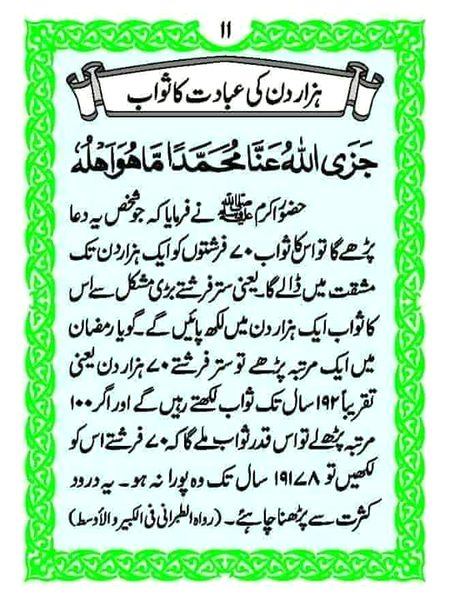 ۱۱
ہزار دن کی عبادت کا ثواب
جَزَى اللهُ عَنَّا مُحَمَّدًا مَّا هُوَ اَهْلُهٗ
حضور اکرم ﷺ نے فرمایا کہ جو شخص یہ دعا
پڑھے گا تو اس کا ثواب ۷۰ فرشتوں کو ایک ہزار دن تک
مشقت میں ڈالے گا۔ یعنی ستر فرشتے بڑی مشکل سے اس
کا ثواب ایک ہزار دن میں لکھ پائیں گے۔ گویا رمضان
میں ایک مرتبہ پڑھے تو ستر فرشتے ۷۰ ہزار دن یعنی
تقریباً ۱۹۲ سال تک ثواب لکھتے رہیں گے اور اگر ۱۰۰
مرتبہ پڑھ لے تو اس قدر ثواب ملے گا کہ ۷۰ فرشتے اس کو
لکھیں تو ۱۹۱۷۸ سال تک وہ پورا نہ ہو۔ یہ درود
کثرت سے پڑھنا چاہئے۔ (رواہ الطبرانی فی الکبیر والأوسط)